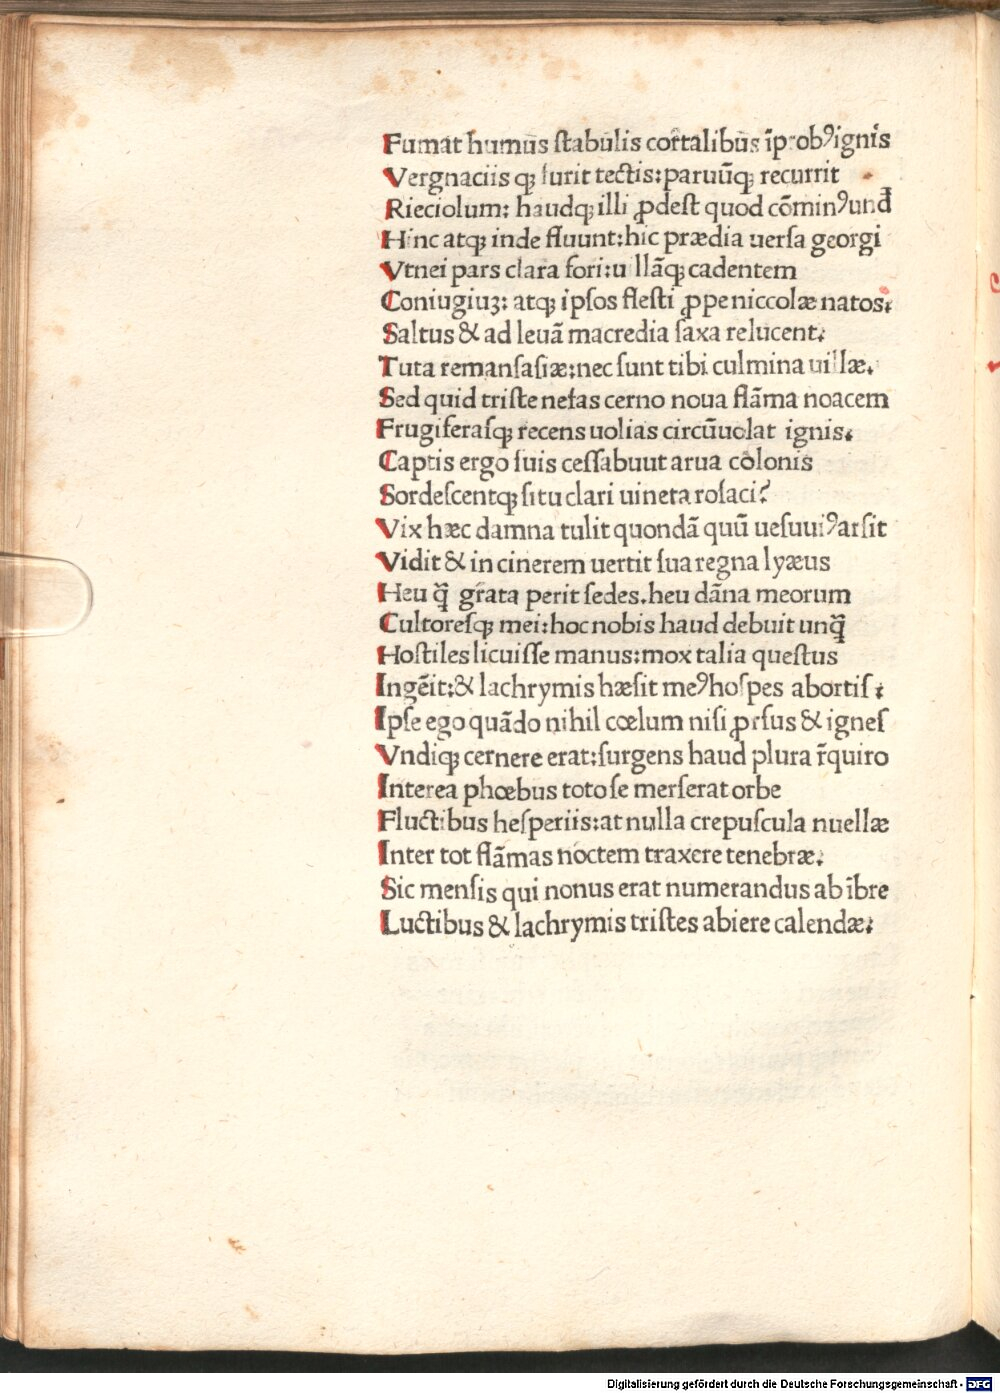 Fumat humus ſtabulis cortalibus īprobꝰ ignis
Vergnaciis qꝫ furit tectis: paruūqꝫ recurrit
Rieciolum: haudqꝫ illi ꝓdeſt quod cōminꝰ und̄
Hinc atqꝫ inde fluunt: hic prædia uerſa georgi
Vtnei pars clara fori: u llāqꝫ cadentem
Coniugiuꝫ: atqꝫ ipſos fleſti ꝓpe niccolæ natos:
Saltus & ad leuā macredia ſaxa relucent:
Tuta remanſaſiæ: nec ſunt tibi culmina uillæ.
Sed quid triſte nefas cerno noua flāma noacem
Frugiferaſqꝫ recens uolias circūuolat ignis:
Captis ergo ſuis ceſſabuut arua colonis
Sordeſcentqꝫ ſitu clari uineta roſaci?
Vix hæc damna tulit quondā quū ueſuuiꝰ arſit
Vidit & in cinerem uertit ſua regna lyæus
Heu q̄ȝ grata perit ſedes. heu dāna meorum
Cultoreſqꝫ mei: hoc nobis haud debuit unq̄ȝ
Hoſtiles licuiſſe manus: mox talia queſtus
Ingēit: & lachrymis hæſit meꝰ hoſpes abortiſ:
Ipſe ego quādo nihil cœlum niſi ꝓrſus & igneſ
Vndiqꝫ cernere erat: ſurgens haud plura r̄quiro
Interea phœbus toto ſe merſerat orbe
Fluctibus heſperiis: at nulla crepuſcula nuellæ
Inter tot flāmas noctem traxere tenebræ:
Sic menſis qui nonus erat numerandus ab ībre
Luctibus & lachrymis triſtes abiere calendæ:
Digitalisierung gefördert durch die Deutsche Forschungsgemeinschaft - DFG